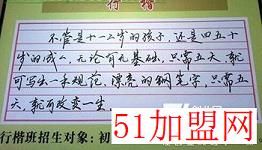 行楷
不管是十一二岁的孩子,还是四五十
岁的成人,无论有无基础,只需五天,就
可写出一手规范、漂亮的钢笔字,只需五
天,就可改变一生。
行楷班招生对象:初
51加盟网